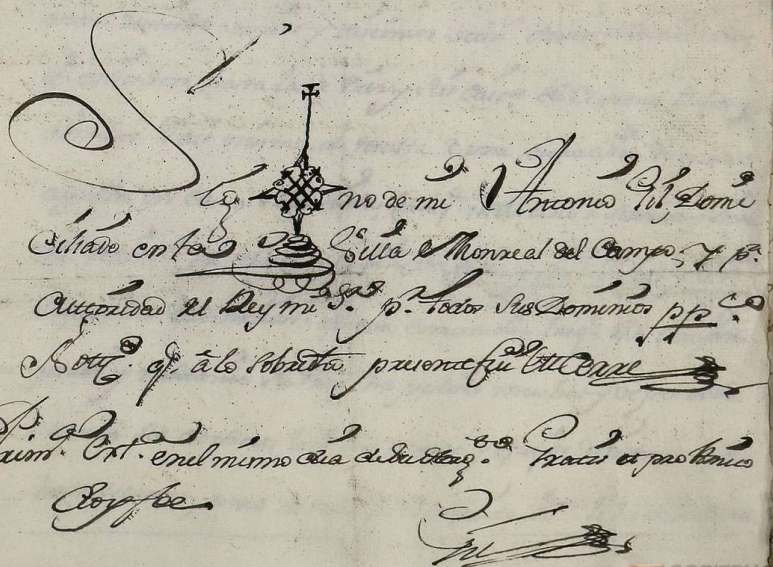 Sig no de mi Antonio Gil, Domi
Ciliado en la Villa Monreal del Campo, y pr.
Auttoridad del Rey mi Sr. pr. todos sus Dominios ppco
Nottº. q. á lo sobredho presente fui et Cerre
Prim. Ext. en el mismo dia de su otorgto. Gratis et pro Unico
Doy fee
Gil